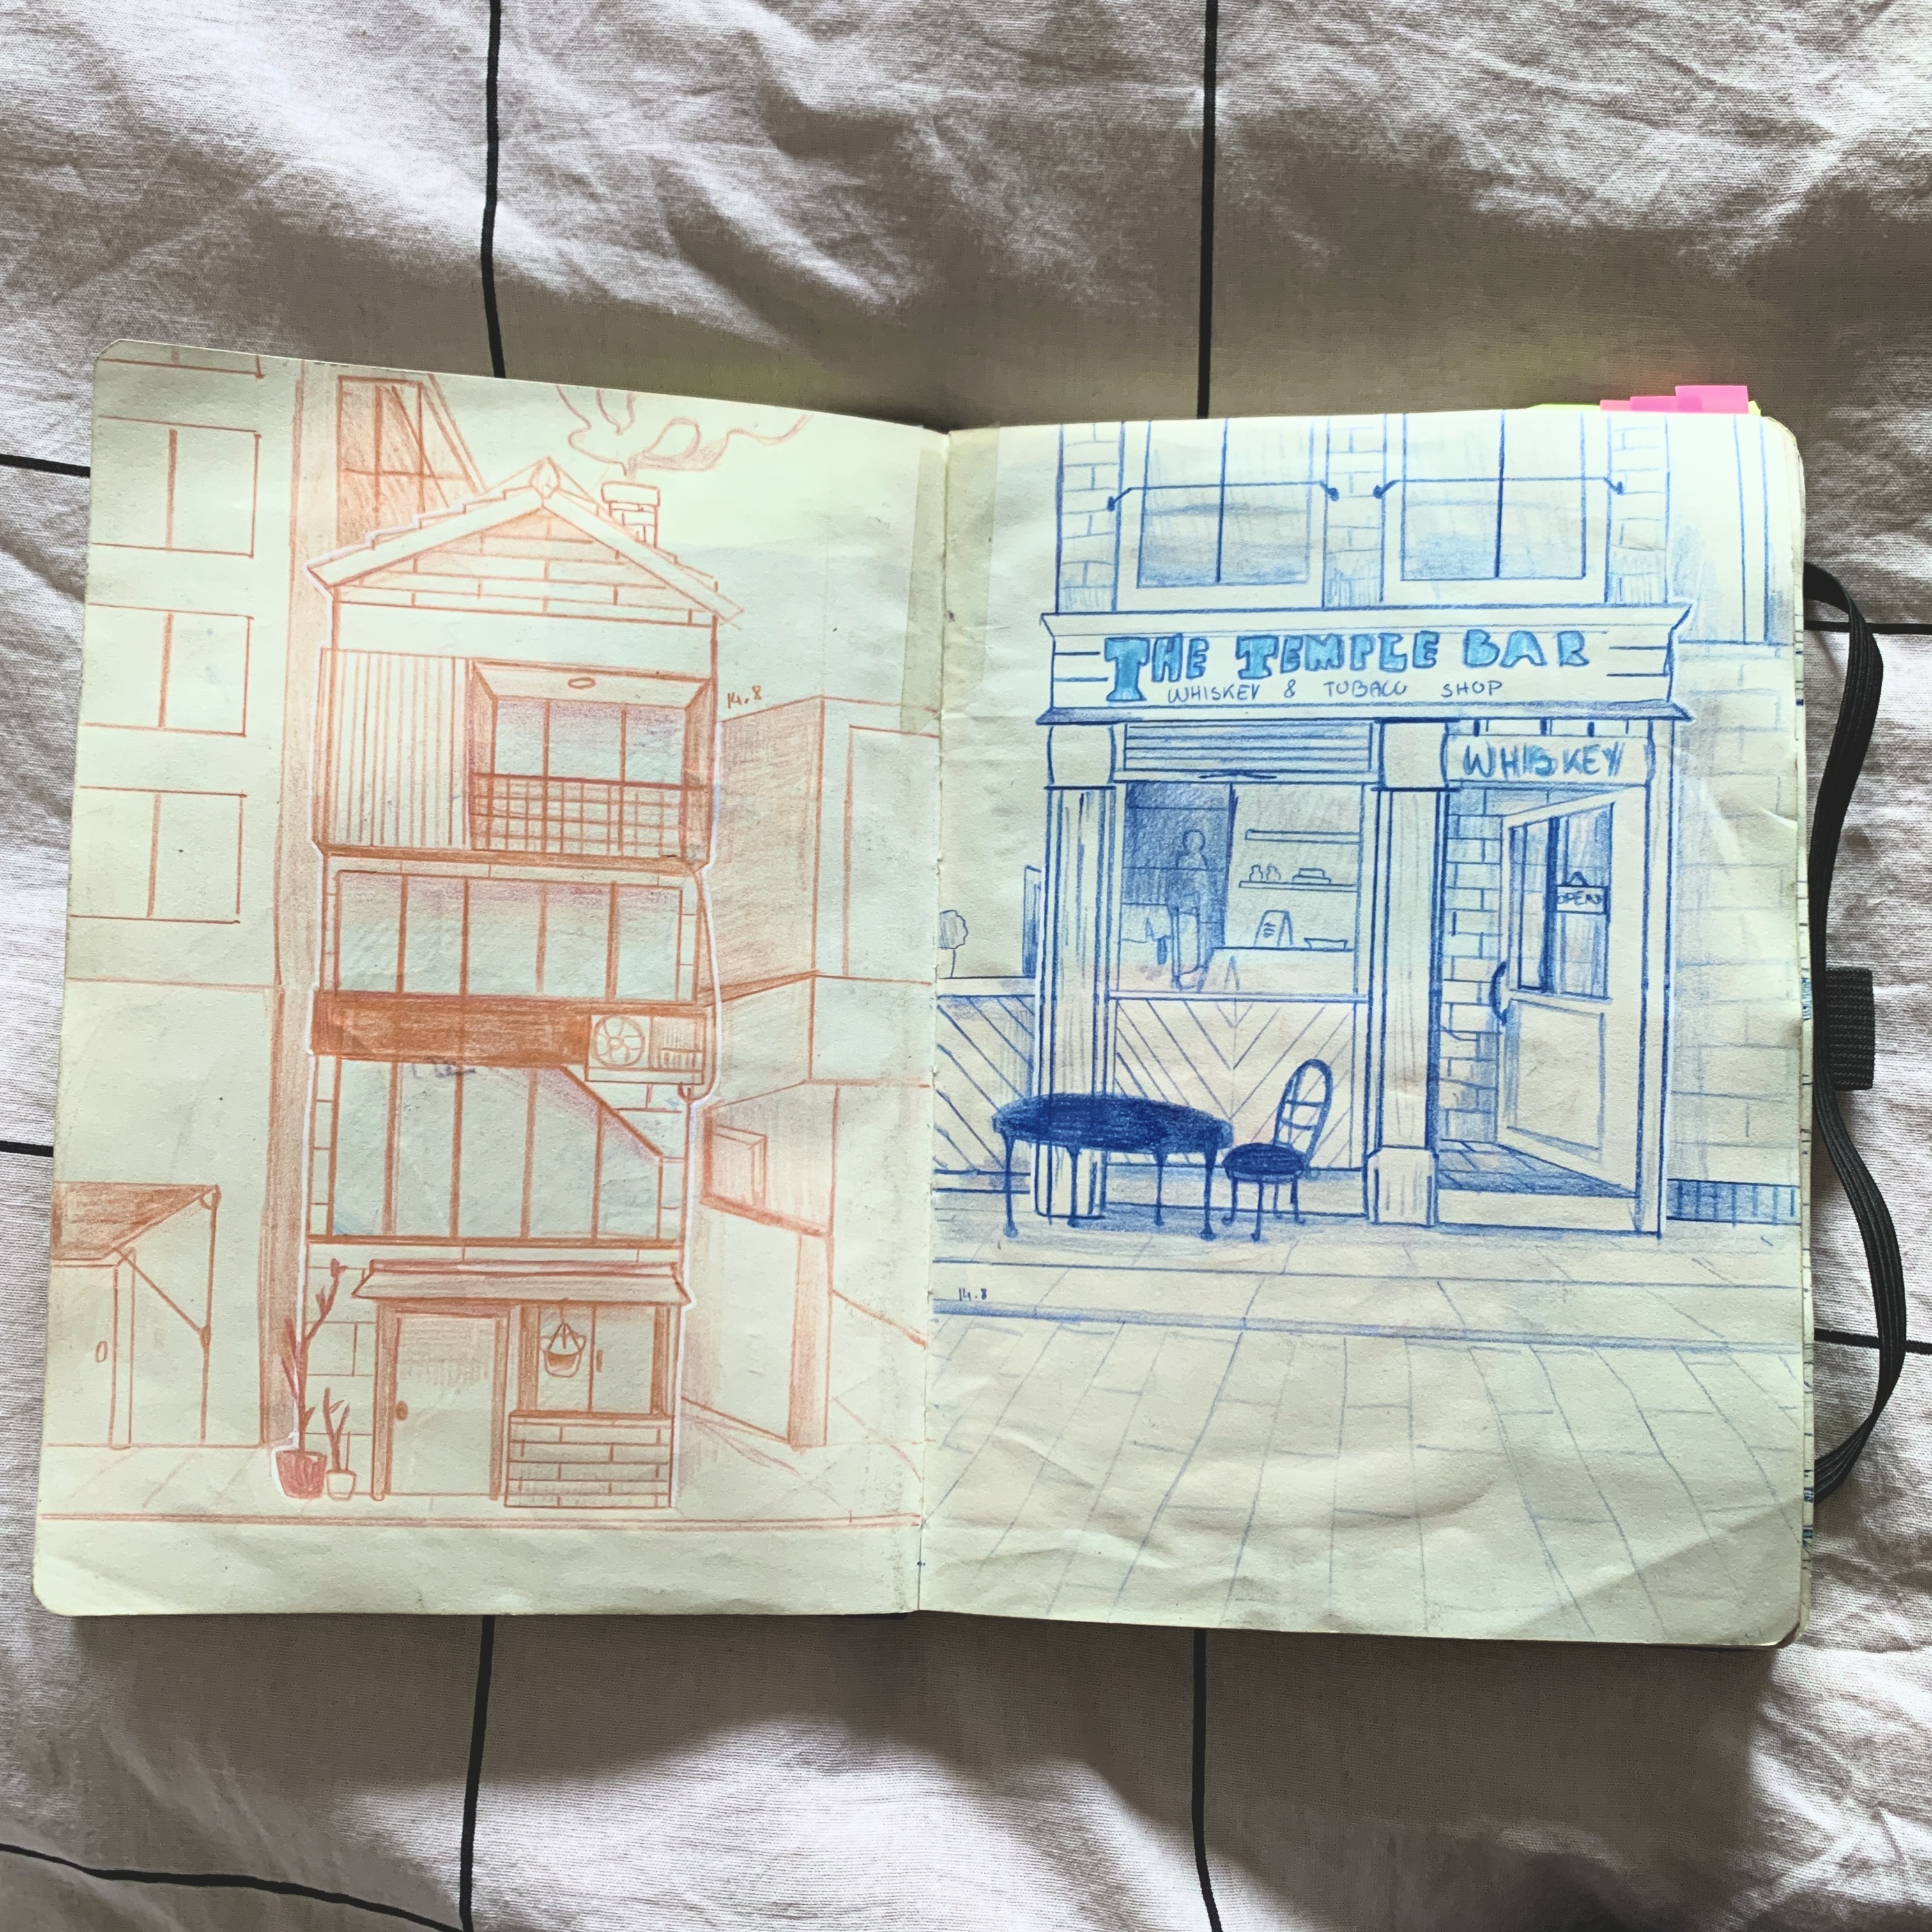 14.8
THE TEMPLE BAR
WHISKEY & TOBACO SHOP
WHISKEY
OPEN
14.8